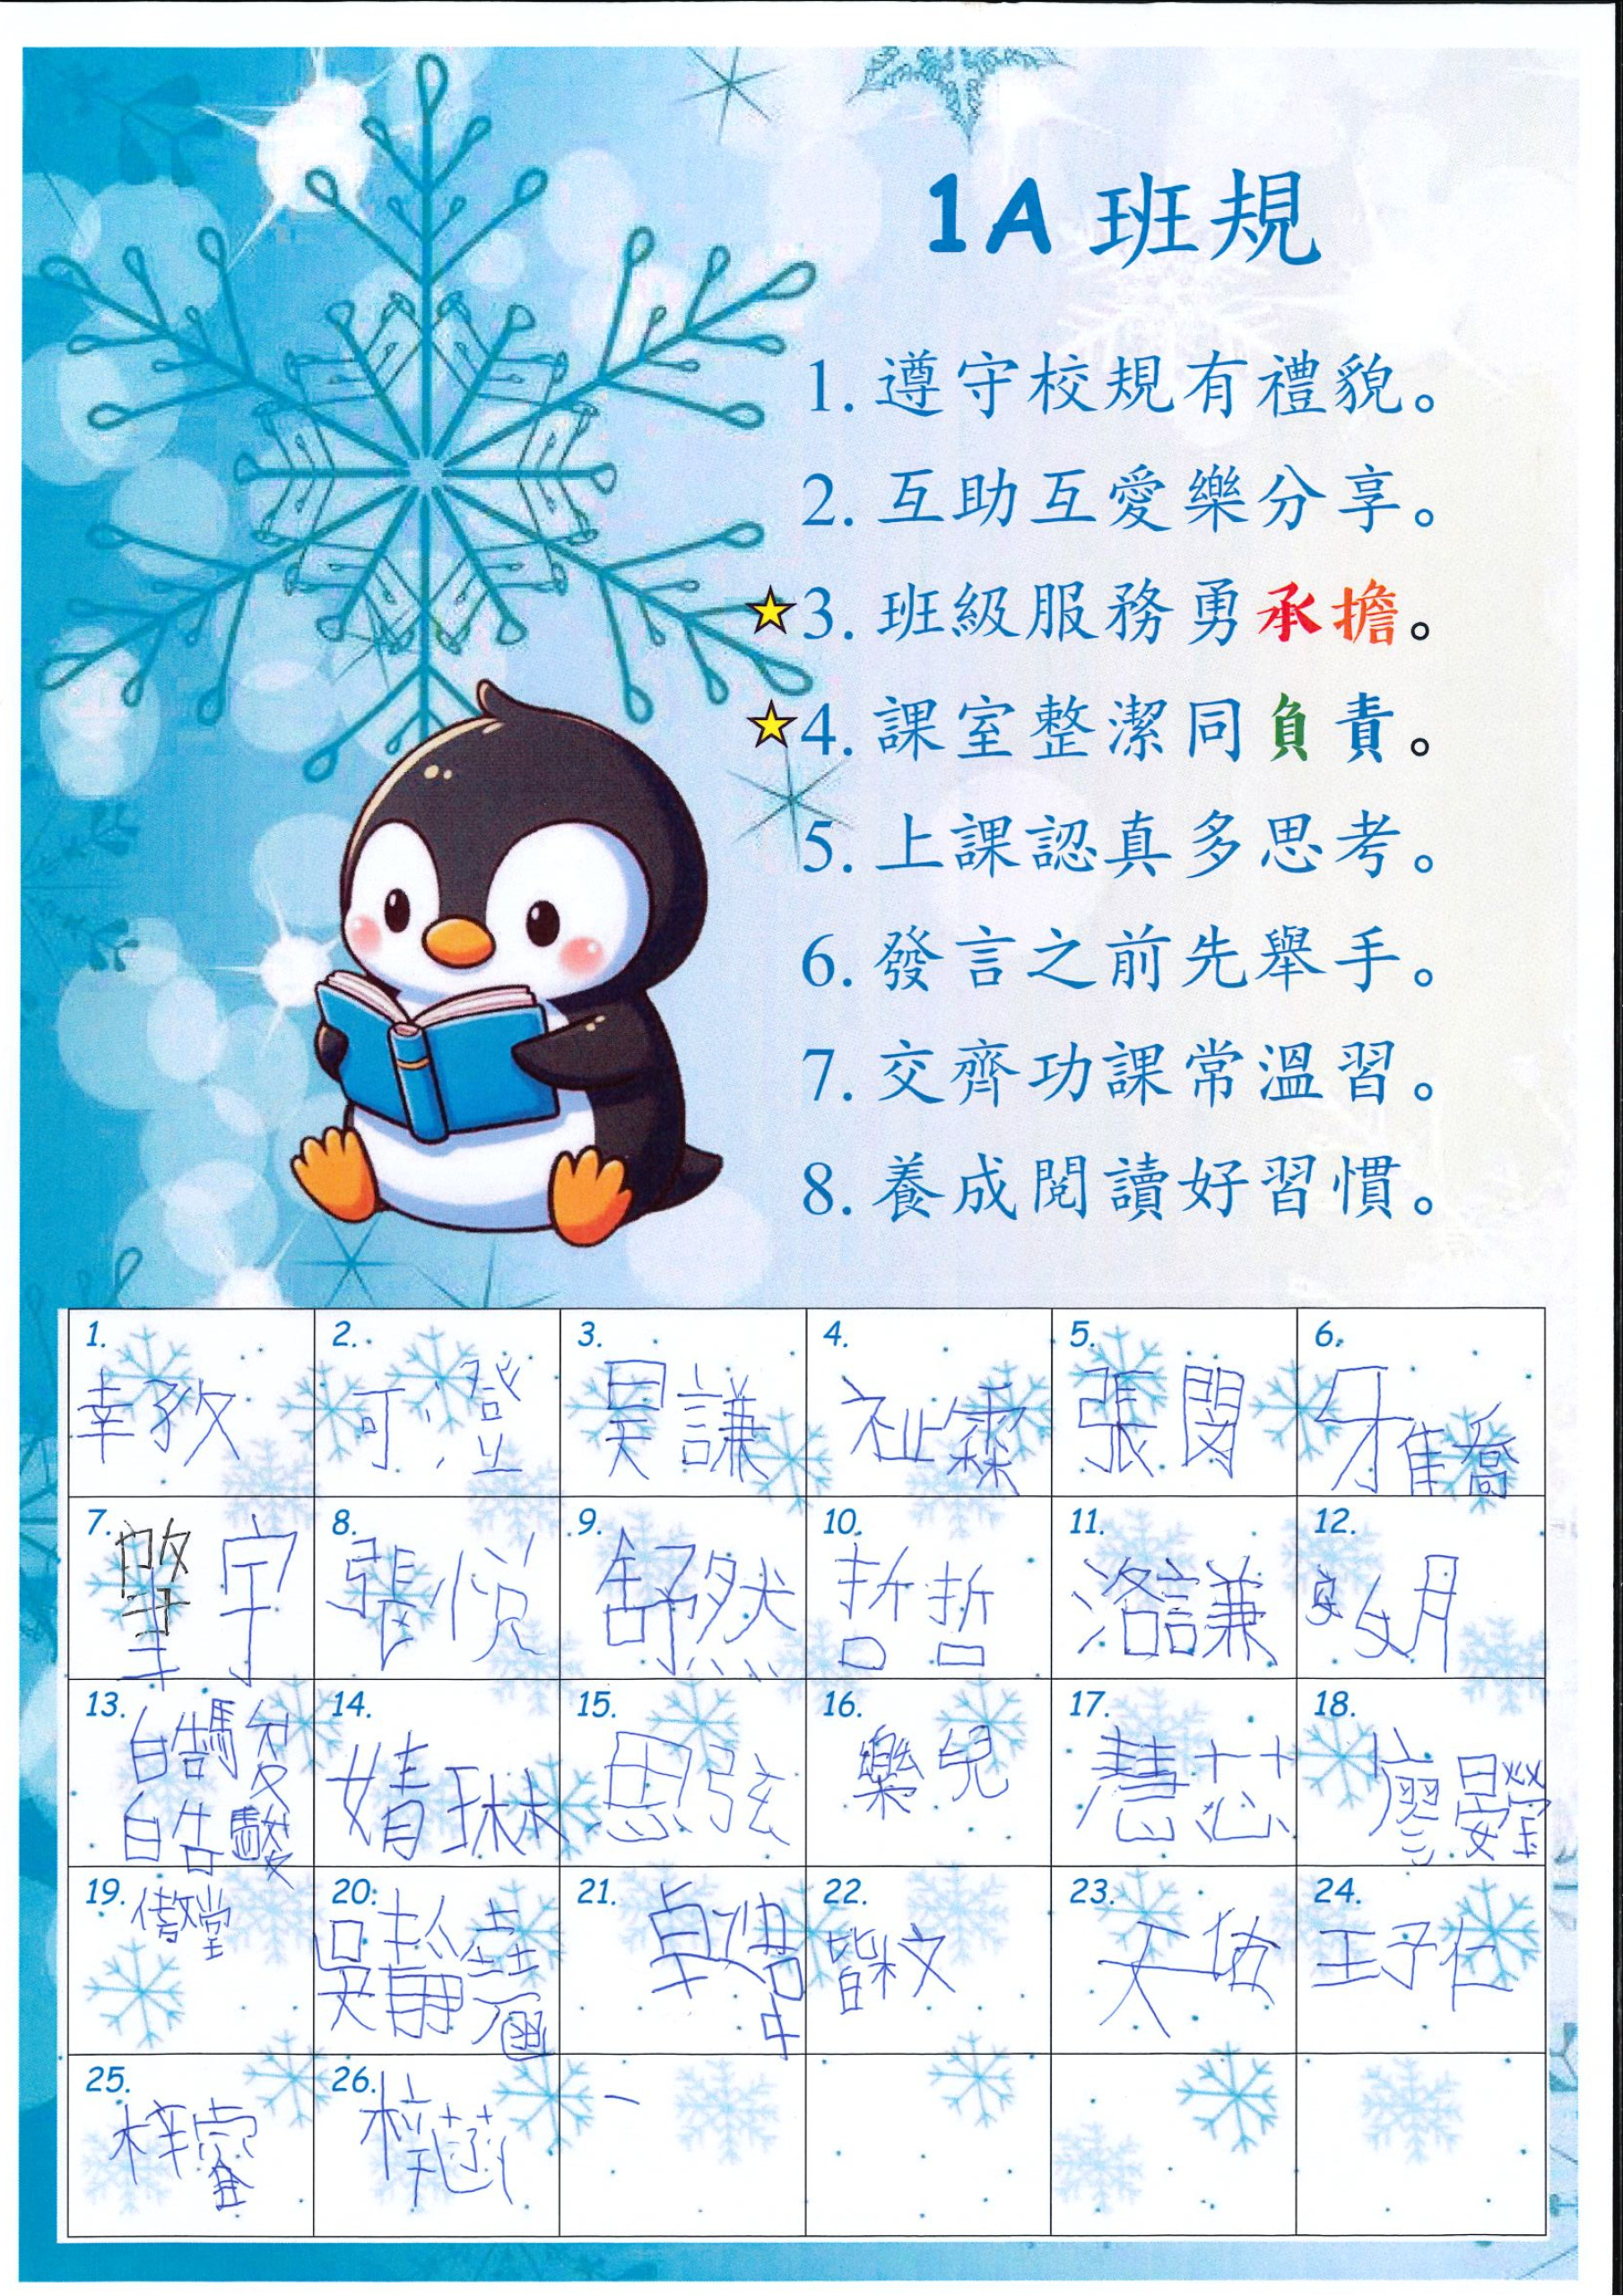 1A 班規
1. 遵守校規有禮貌。
2. 互助互愛樂分享。
3. 班級服務勇承擔。
4. 課室整潔同負責。
5. 上課認真多思考。
6. 發言之前先舉手。
7. 交齊功課常溫習。
8. 養成閱讀好習慣。
1. 2. 3. 4. 5. 6.
幸孜 可澄 昊謙 祉霖 張閔
7. 8. 9. 10. 11. 12.
宇 張悦 舒然 哲哲 洛謙
13. 14. 15. 16. 17. 18.
皓 婧琳 思弦 樂兒 慧芯 廖晏瑩
19. 20. 21. 22. 23. 24.
吳静 卓 皆文 天 王子仁
25. 26.
梓睿 梓菡